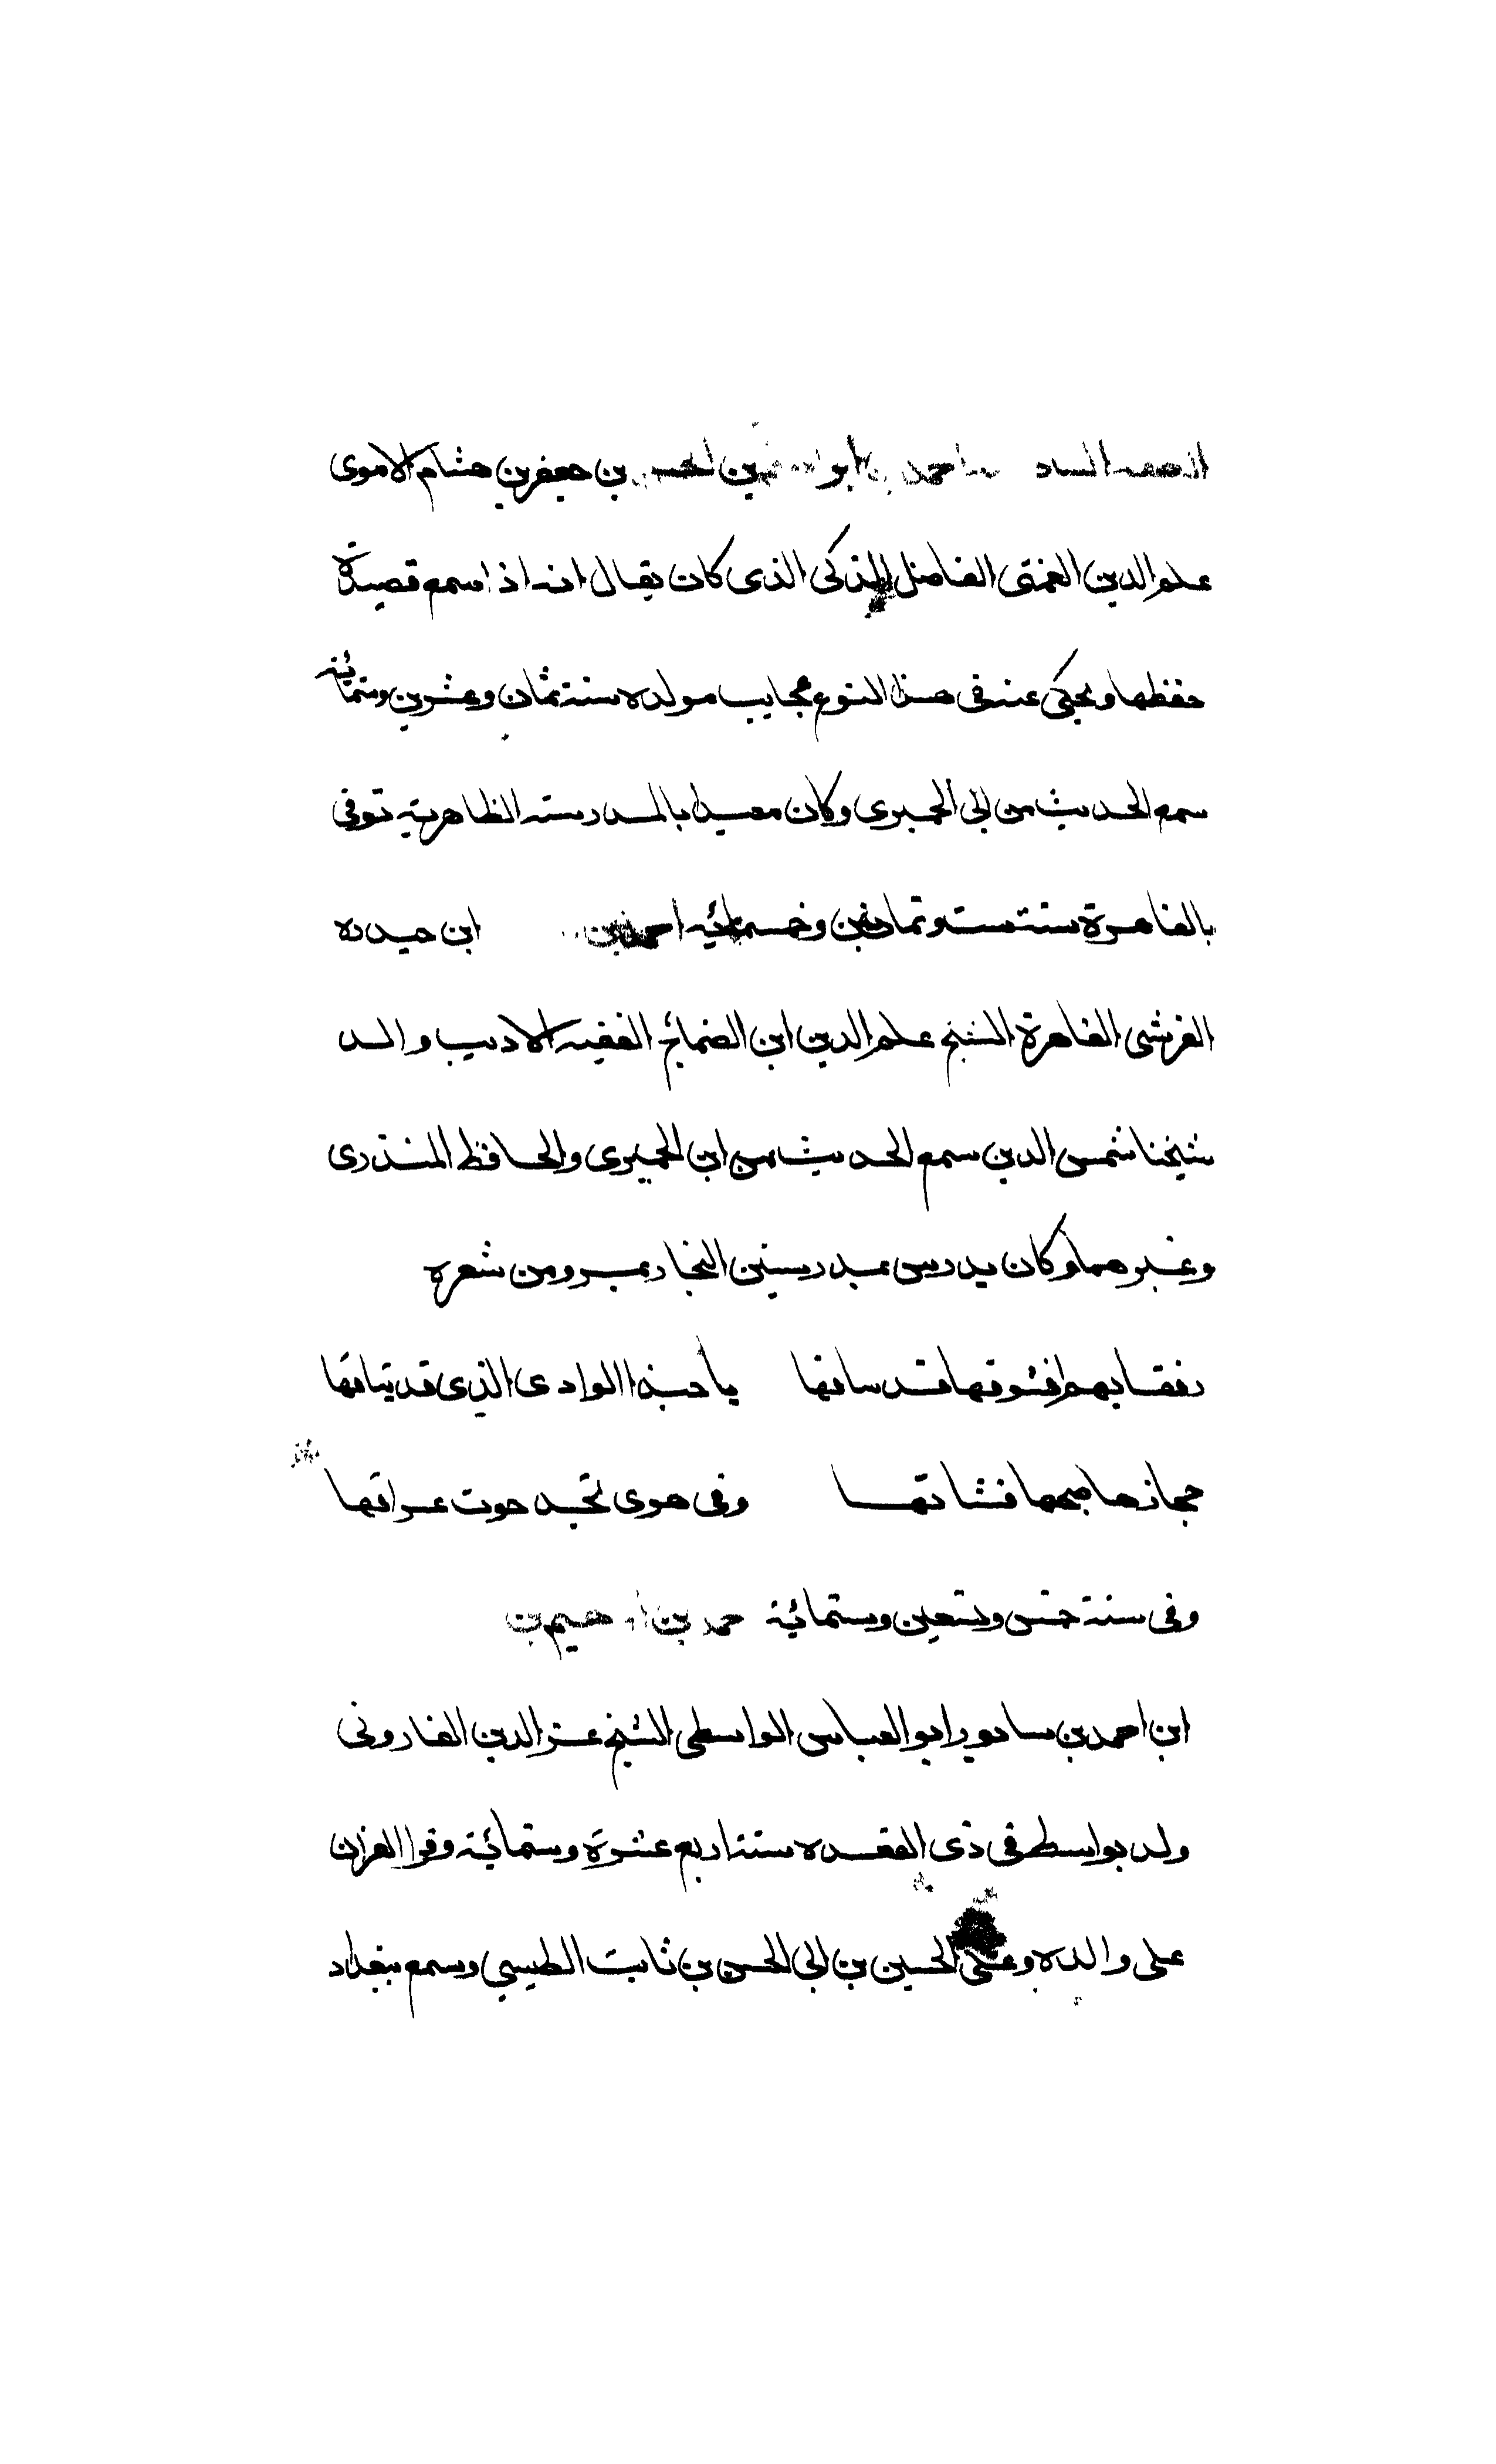 احمد بن ابراهيم بن الحسن بن جعفر بن هشام الاموى
علم الدين القمنى الفاضل الذكى الذى كان يقال انه اذا سمع قصيدة
حفظها ويحكى عنه فى هذا النوع عجايب مولده سنة ثمان وعشرين وستمائة
سمع الحديث من ابى الحميرى وكان معيدا بالمدرسته الظاهرية توفى
بالقاهرة سنة ست وثمانين وخمسمائه احمد بن ابن حيدره
القرشى القاهرة الشيخ علم الدين ابن القمائح الفقيه الاديب والد
شيخنا شمس الدين سمع الحديث من ابن الحميرى والحافظ المنذرى
وغيرهما وكان يدرس بمدرستين النجار بمر ومن شعره
رفقا بهم فشوقها قد ساقها ياحبذا الوادى الذى قد تياقها
حجازها مبهما فشاتها وفى هوى نجد حوت عراقها
وفى سنة خمس وتسعين وستمائة احمد بن ابراهيم بن
ابن احمد بن سابور ابو العباس الواسطى الشيخ عز الدين الفارونى
ولد بواسط فى ذى القعده سنة اربع عشرة وستمائة وقرا القران
على والده وعلى الحسين بن ابى الحسن بن ثابت الطيبى وسمع ببغداد